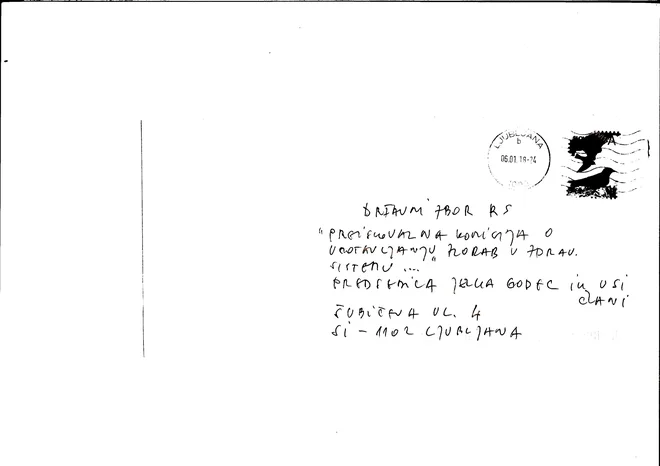 LJUBLJANA
b
06.01.18-24
A
DRŽAVNI ZBOR RS
"PREISKOVALNA KOMISIJA O
UGOTAVLJANJU ZLORAB V ZDRAV.
SISTEMU ..."
PREDSEDNICA JELKA GODEC in VSI
ČLANI
ŠUBIČEVA UL. 4
SI - 1102 LJUBLJANA